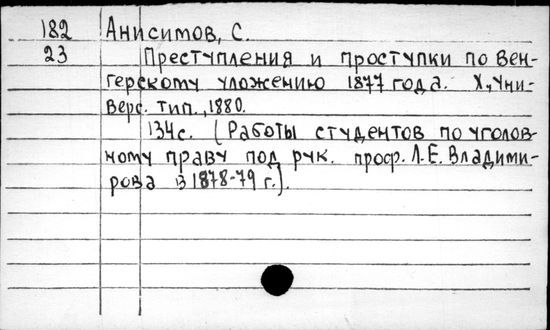 182 Анисимов, С.
23 Преступления и проступки по вен-
герскому уложению 1877 года. Х., Уни-
верс. тип., 1880.
134 с. (Работы студентов по уголов-
ному праву под рук. проф. Л.Е. Владими-
рова в 1878-79 г.).